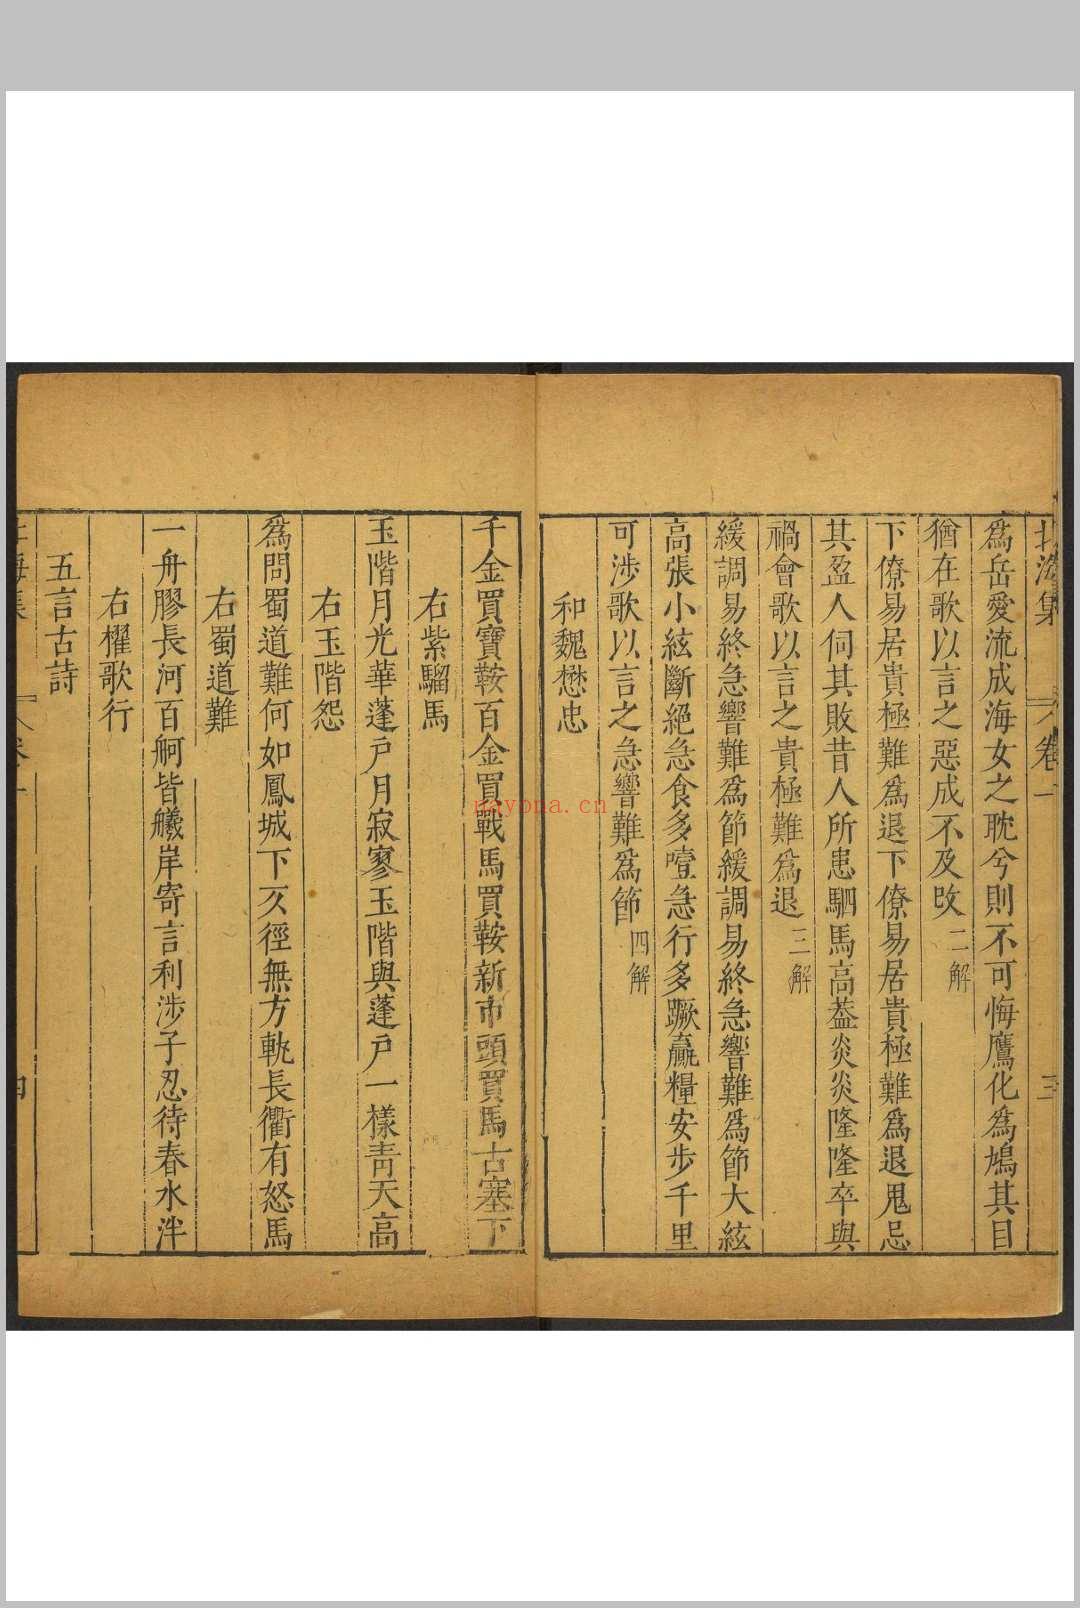 北海集 卷一 三
爲岳愛流成海女之耽兮則不可悔鷹化爲鳩其目
猶在歌以言之惡成不及改二解
下僚易居貴極難爲退下僚易居貴極難爲退鬼忌
其盈人伺其敗昔人所患駟馬高葢炎炎隆隆卒與
禍會歌以言之貴極難爲退三解
緩調易終急響難爲節緩調易終急響難爲節大絃
高張小絃斷絕急食多噎急行多蹶羸糧安步千里
可涉歌以言之急響難爲節四解
和魏懋忠
千金買寶鞍百金買戰馬買鞍新市頭買馬古塞下
右紫騮馬
玉階月光華蓬戶月寂寥玉階與蓬戶一樣靑天高
右玉階怨
爲問蜀道難何如鳳城下仄徑無方軌長衢有怒馬
右蜀道難
一舟膠長河百舸皆艤岸寄言利涉子忍待春水泮
右櫂歌行
五言古詩
海集 卷一 四
nayona.cn